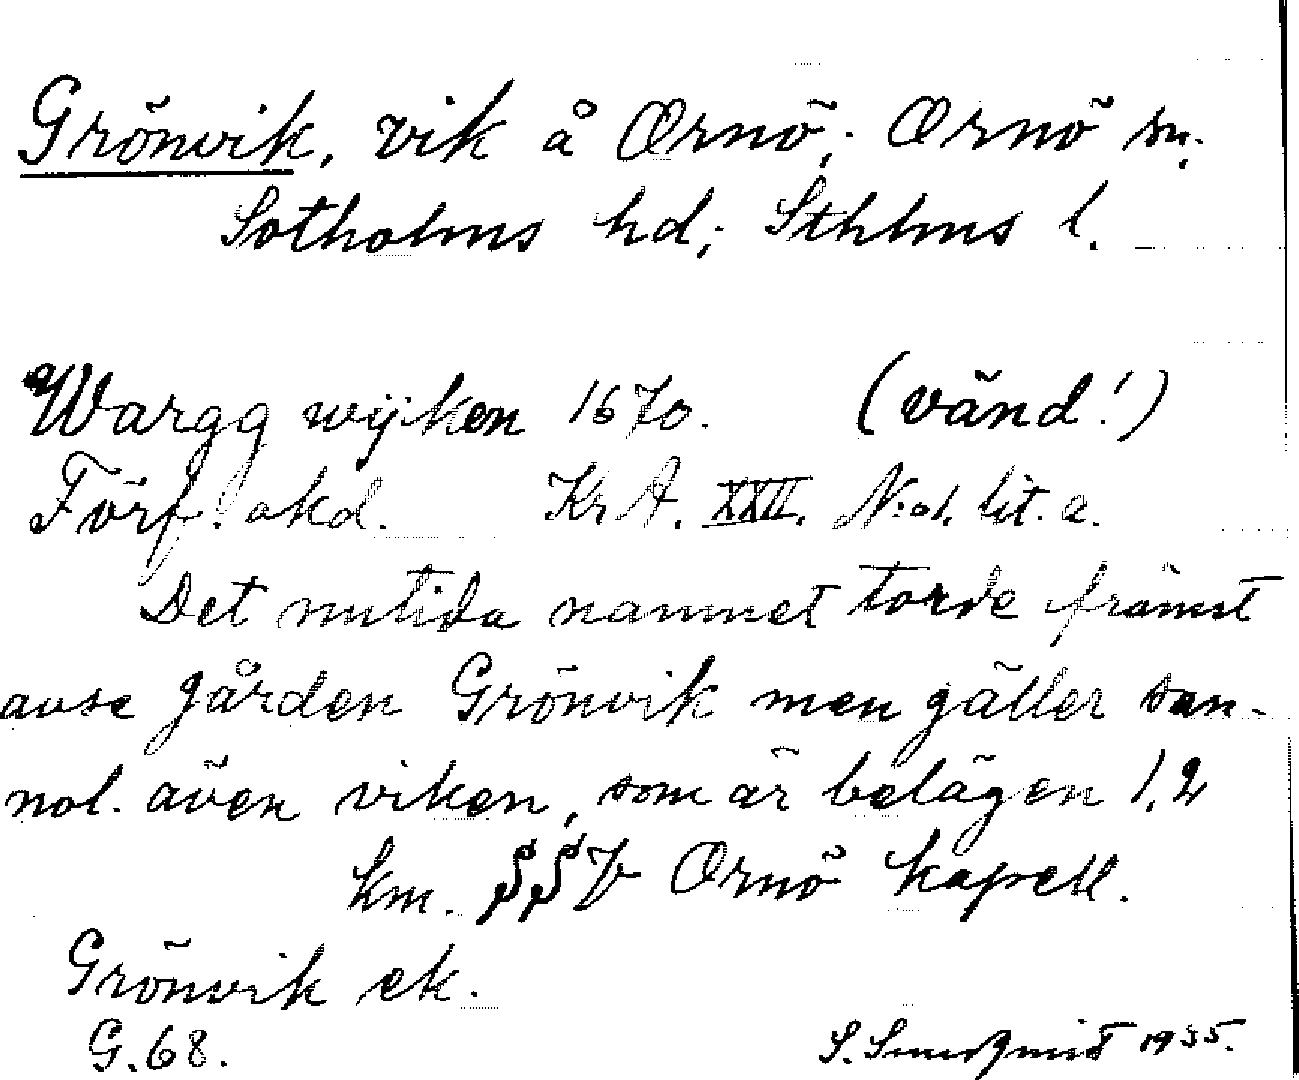 Grönvik, vik å Ornö; Ornö sn;
Sotholms hd; Sthlms l.
Wargg wijken 1670. (vänd!)
Förf: akd. KrA. XXII. N:o1. lit. a.
Det nutida namnet torde främst
avse gården Grönvik men gäller san-
nol. även viken, som är belägen 1,2
km. SSV Ornö kapell.
Grönvik ek.
G.68.
S. Sundqvist 1935.